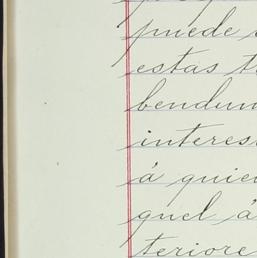 puede
estas
bendum
interes
á quie
quel á
teriore